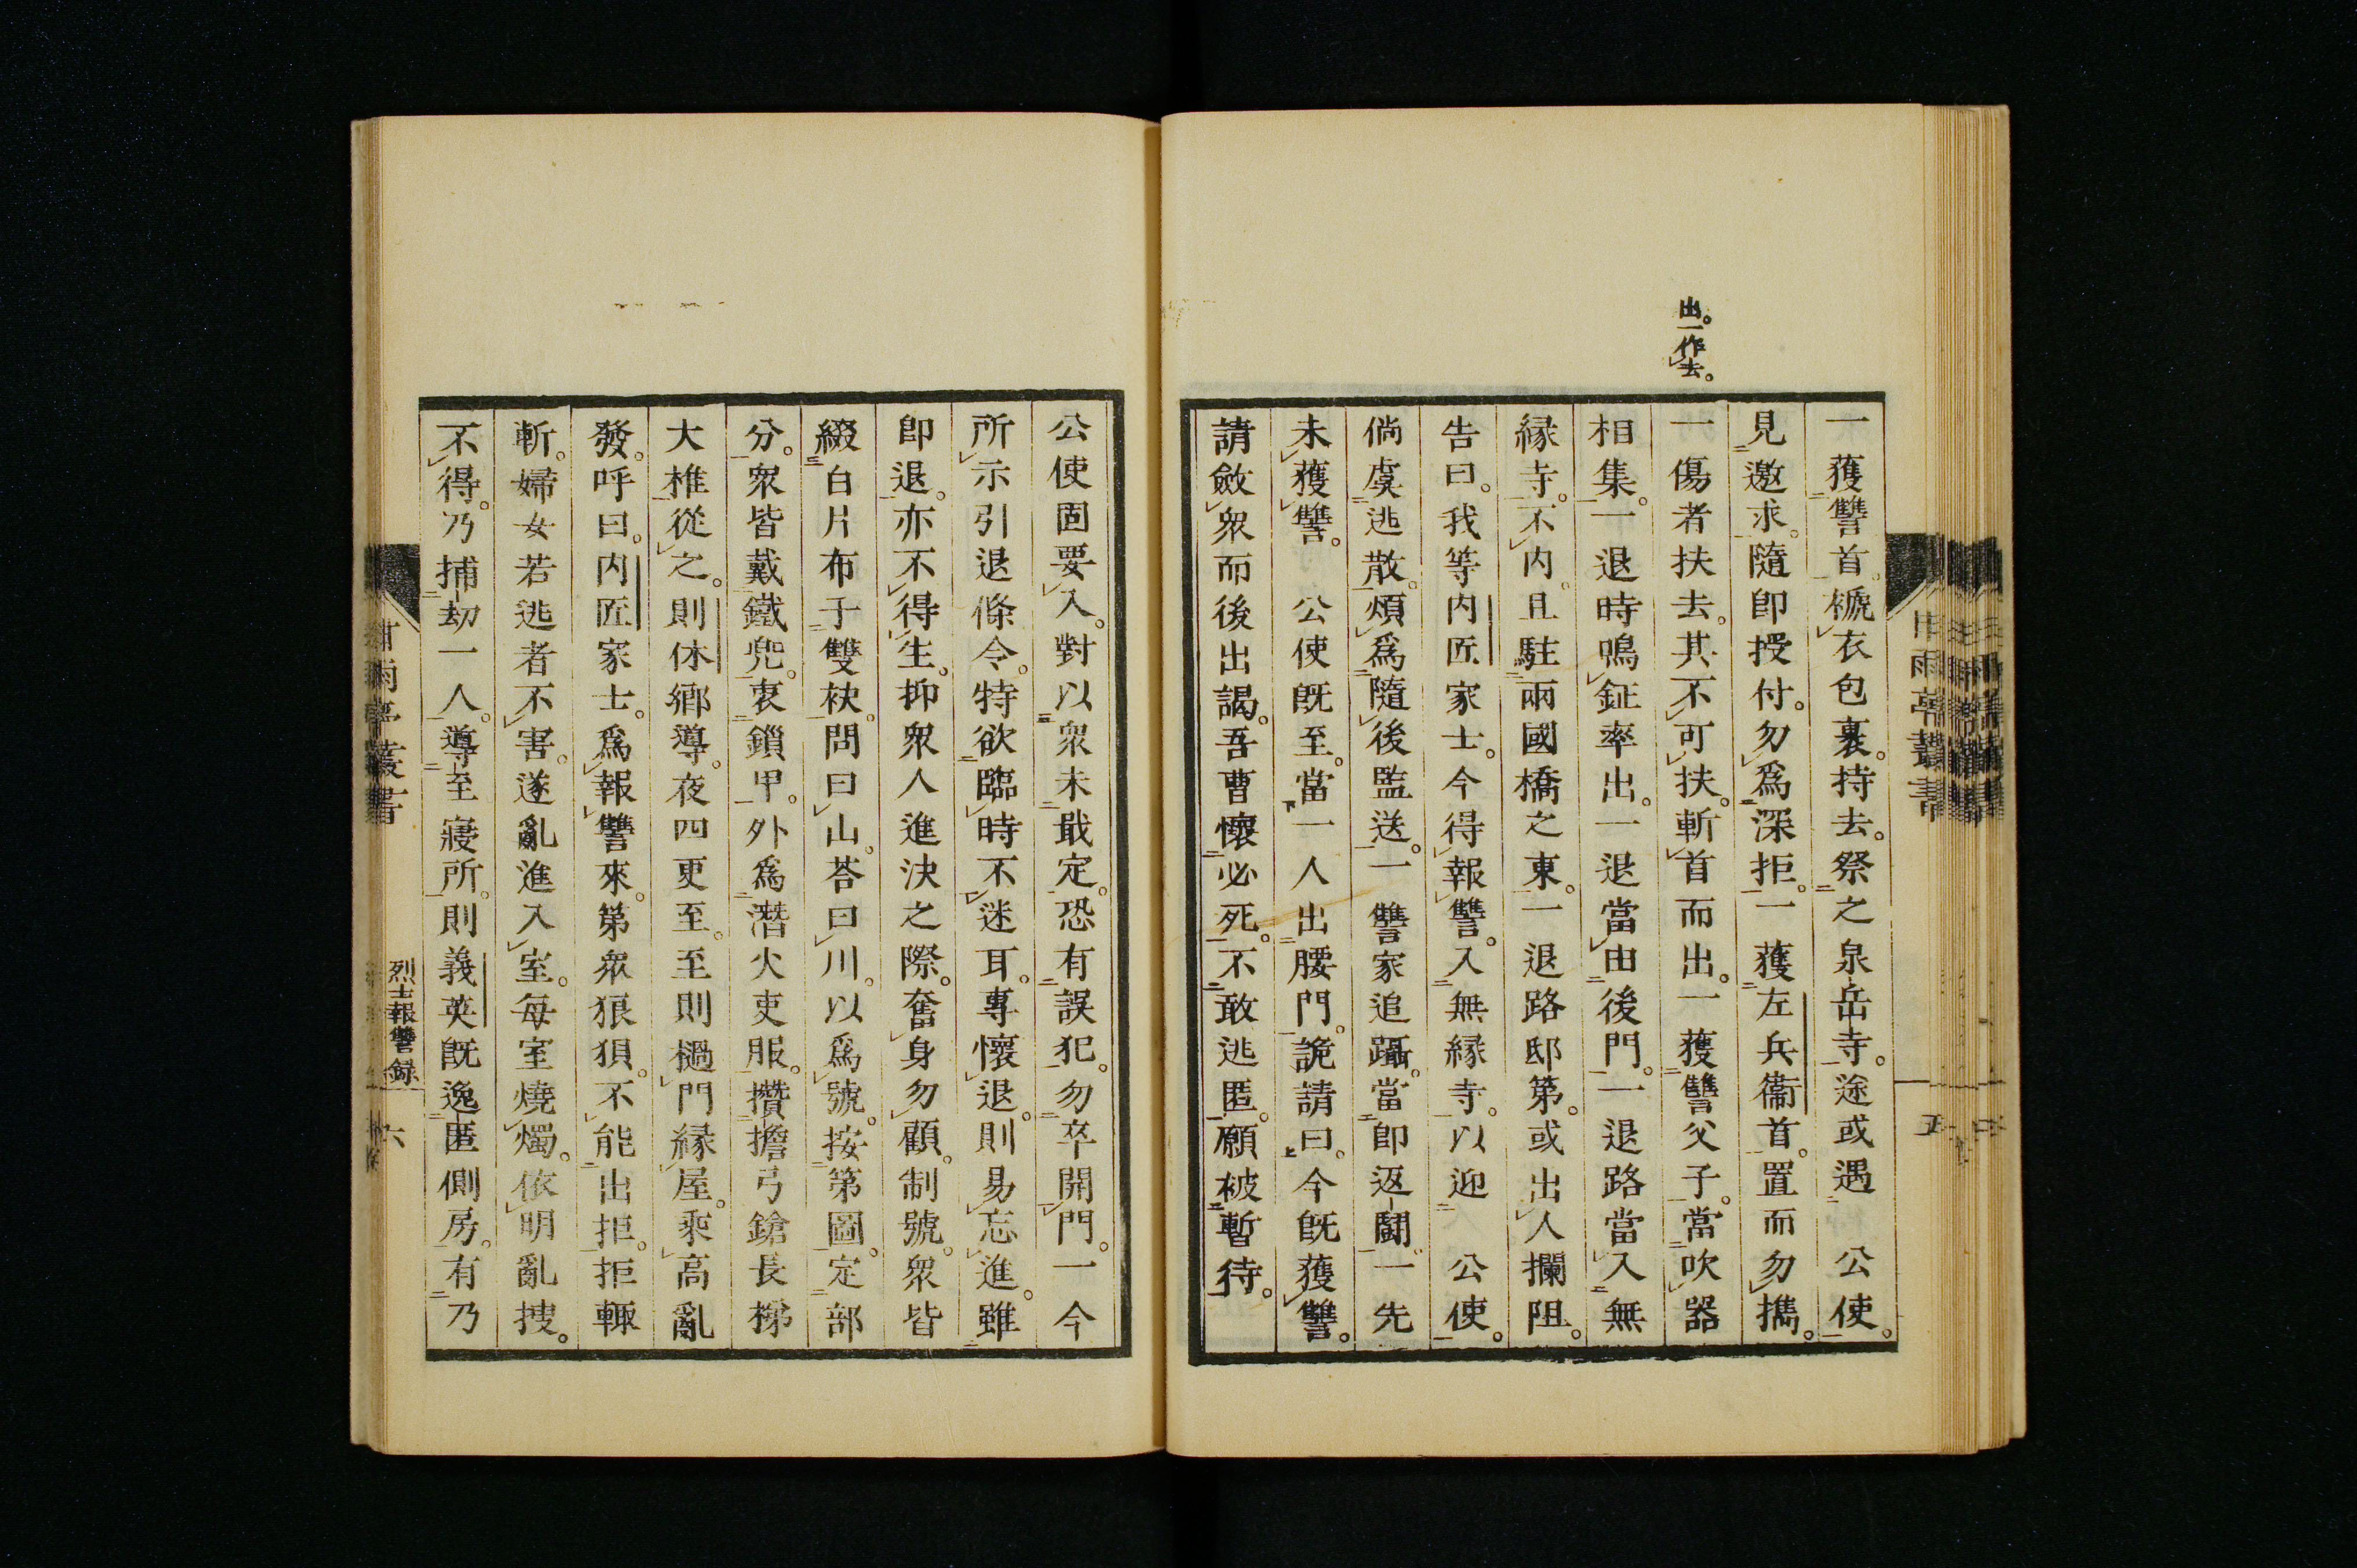 出。一作去。
一獲讐首。褫衣包裹。持去。祭之泉岳寺。途或遇　公使。
見邀求。隨卽授付。勿爲深拒。一獲左兵衞首。置而勿㩦。
一傷者扶去。其不可扶。斬首而出。一獲讐父子。當吹器
相集。一退時鳴鉦率出。一退當由後門。一退路當入無
縁寺。不内。且駐兩國橋之東。一退路邸第。或出人攔阻。
告曰。我等内匠家士。今得報讐。入無縁寺。以迎　公使。
倘虞逃散。煩爲隨後監送。一讐家追躡。當卽返鬪。一先
未獲讐。　公使旣至。當一人出腰門。詭請曰。今旣獲讐。
請斂衆而後出謁。吾曹懷必死。不敢逃匿。願被暫待。
公使固要入。對以衆未戢定。恐有誤犯。勿卒開門。一今
所示引退條令。特欲臨時不迷耳。專懷退。則易忘進。雖
卽退。亦不得生。抑衆人進決之際。奮身勿顧。制號。衆皆
綴白片布于雙袂。問曰山。荅曰川。以爲號。按第圖。定部
分。衆皆戴鐵兜。衷鎖甲。外爲潛火吏服。攢擔弓鎗長梯
大椎從之。則休鄕導。夜四更至。至則檛門縁屋。乘高亂
發。呼曰。内匠家士。爲報讐來。第衆狼狽。不能出拒。拒輙
斬。婦女若逃者不害。遂亂進入室。每室燒燭。依明亂搜。
不得。乃捕劫一人。導至寢所。則義英旣逸匿側房。有乃
甘雨亭叢書
烈士報讐録
六
甘雨亭叢書
五